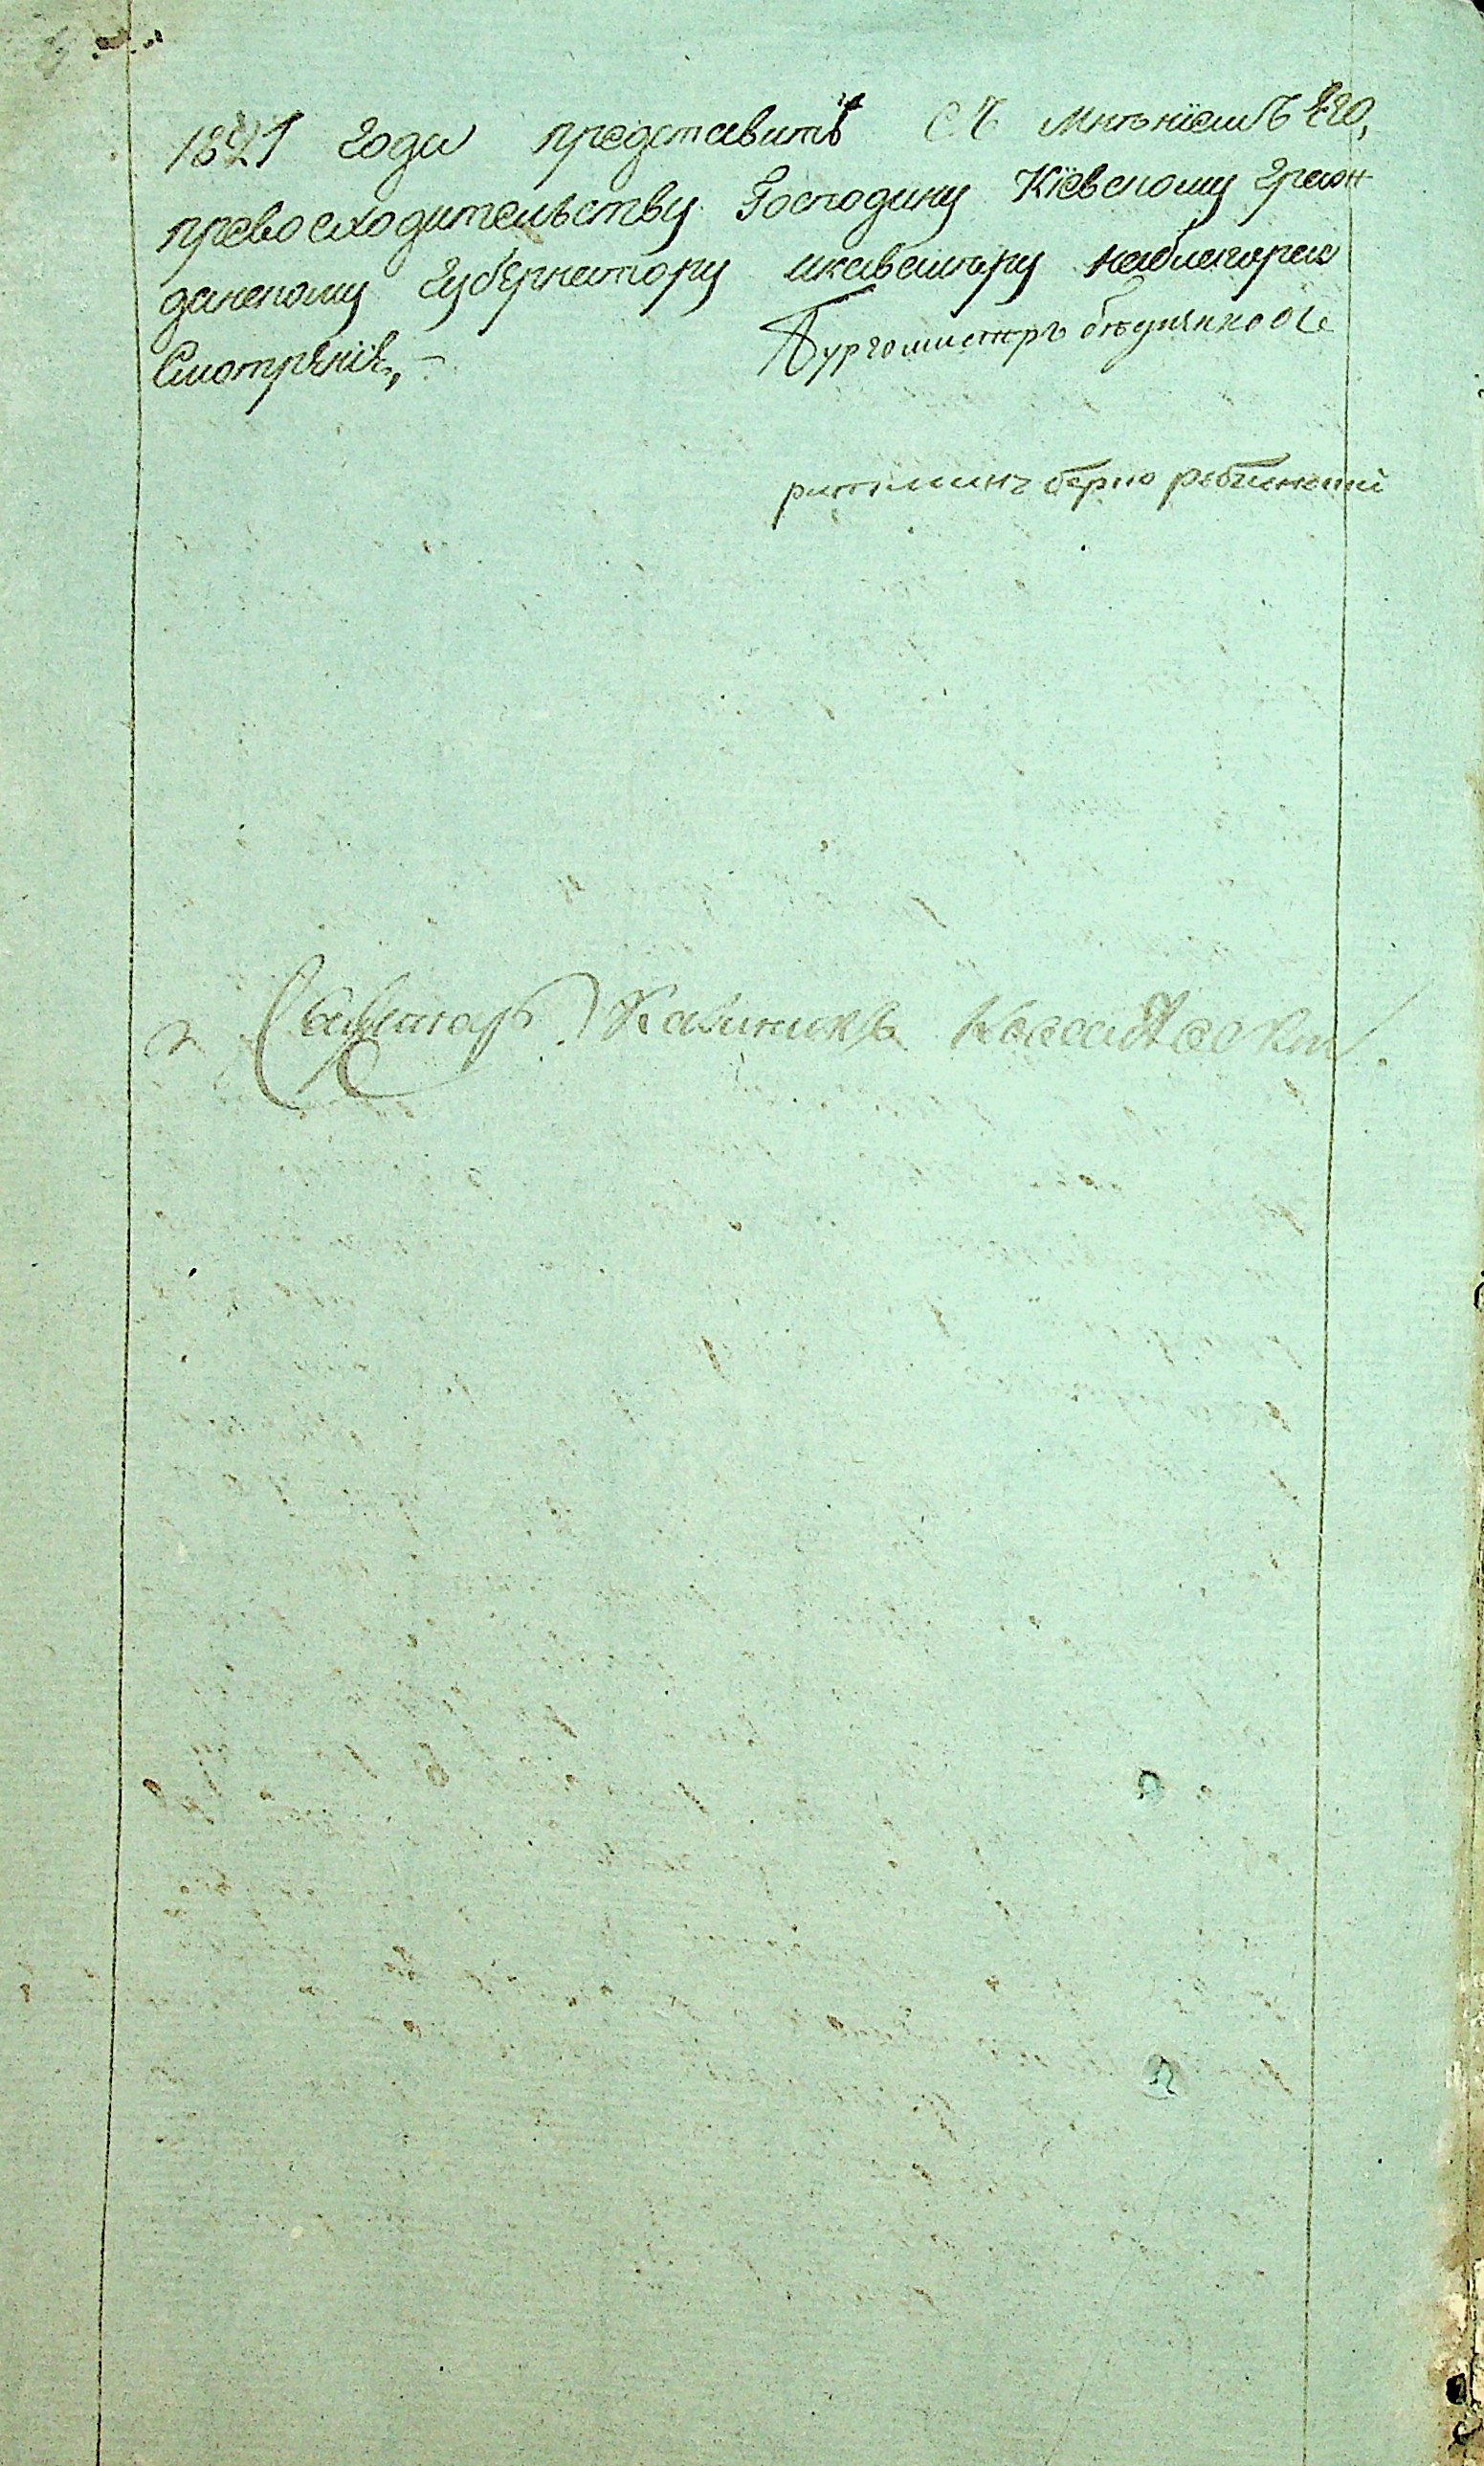 1821 года представить Съ мнѣніемъ Его,
превосходительству Господину Кіевскому граж
данскому Губернатору и кавалеру на благорас
Смотрѣніе,
Бургомистръ
ратманъ берко
Калиникъ